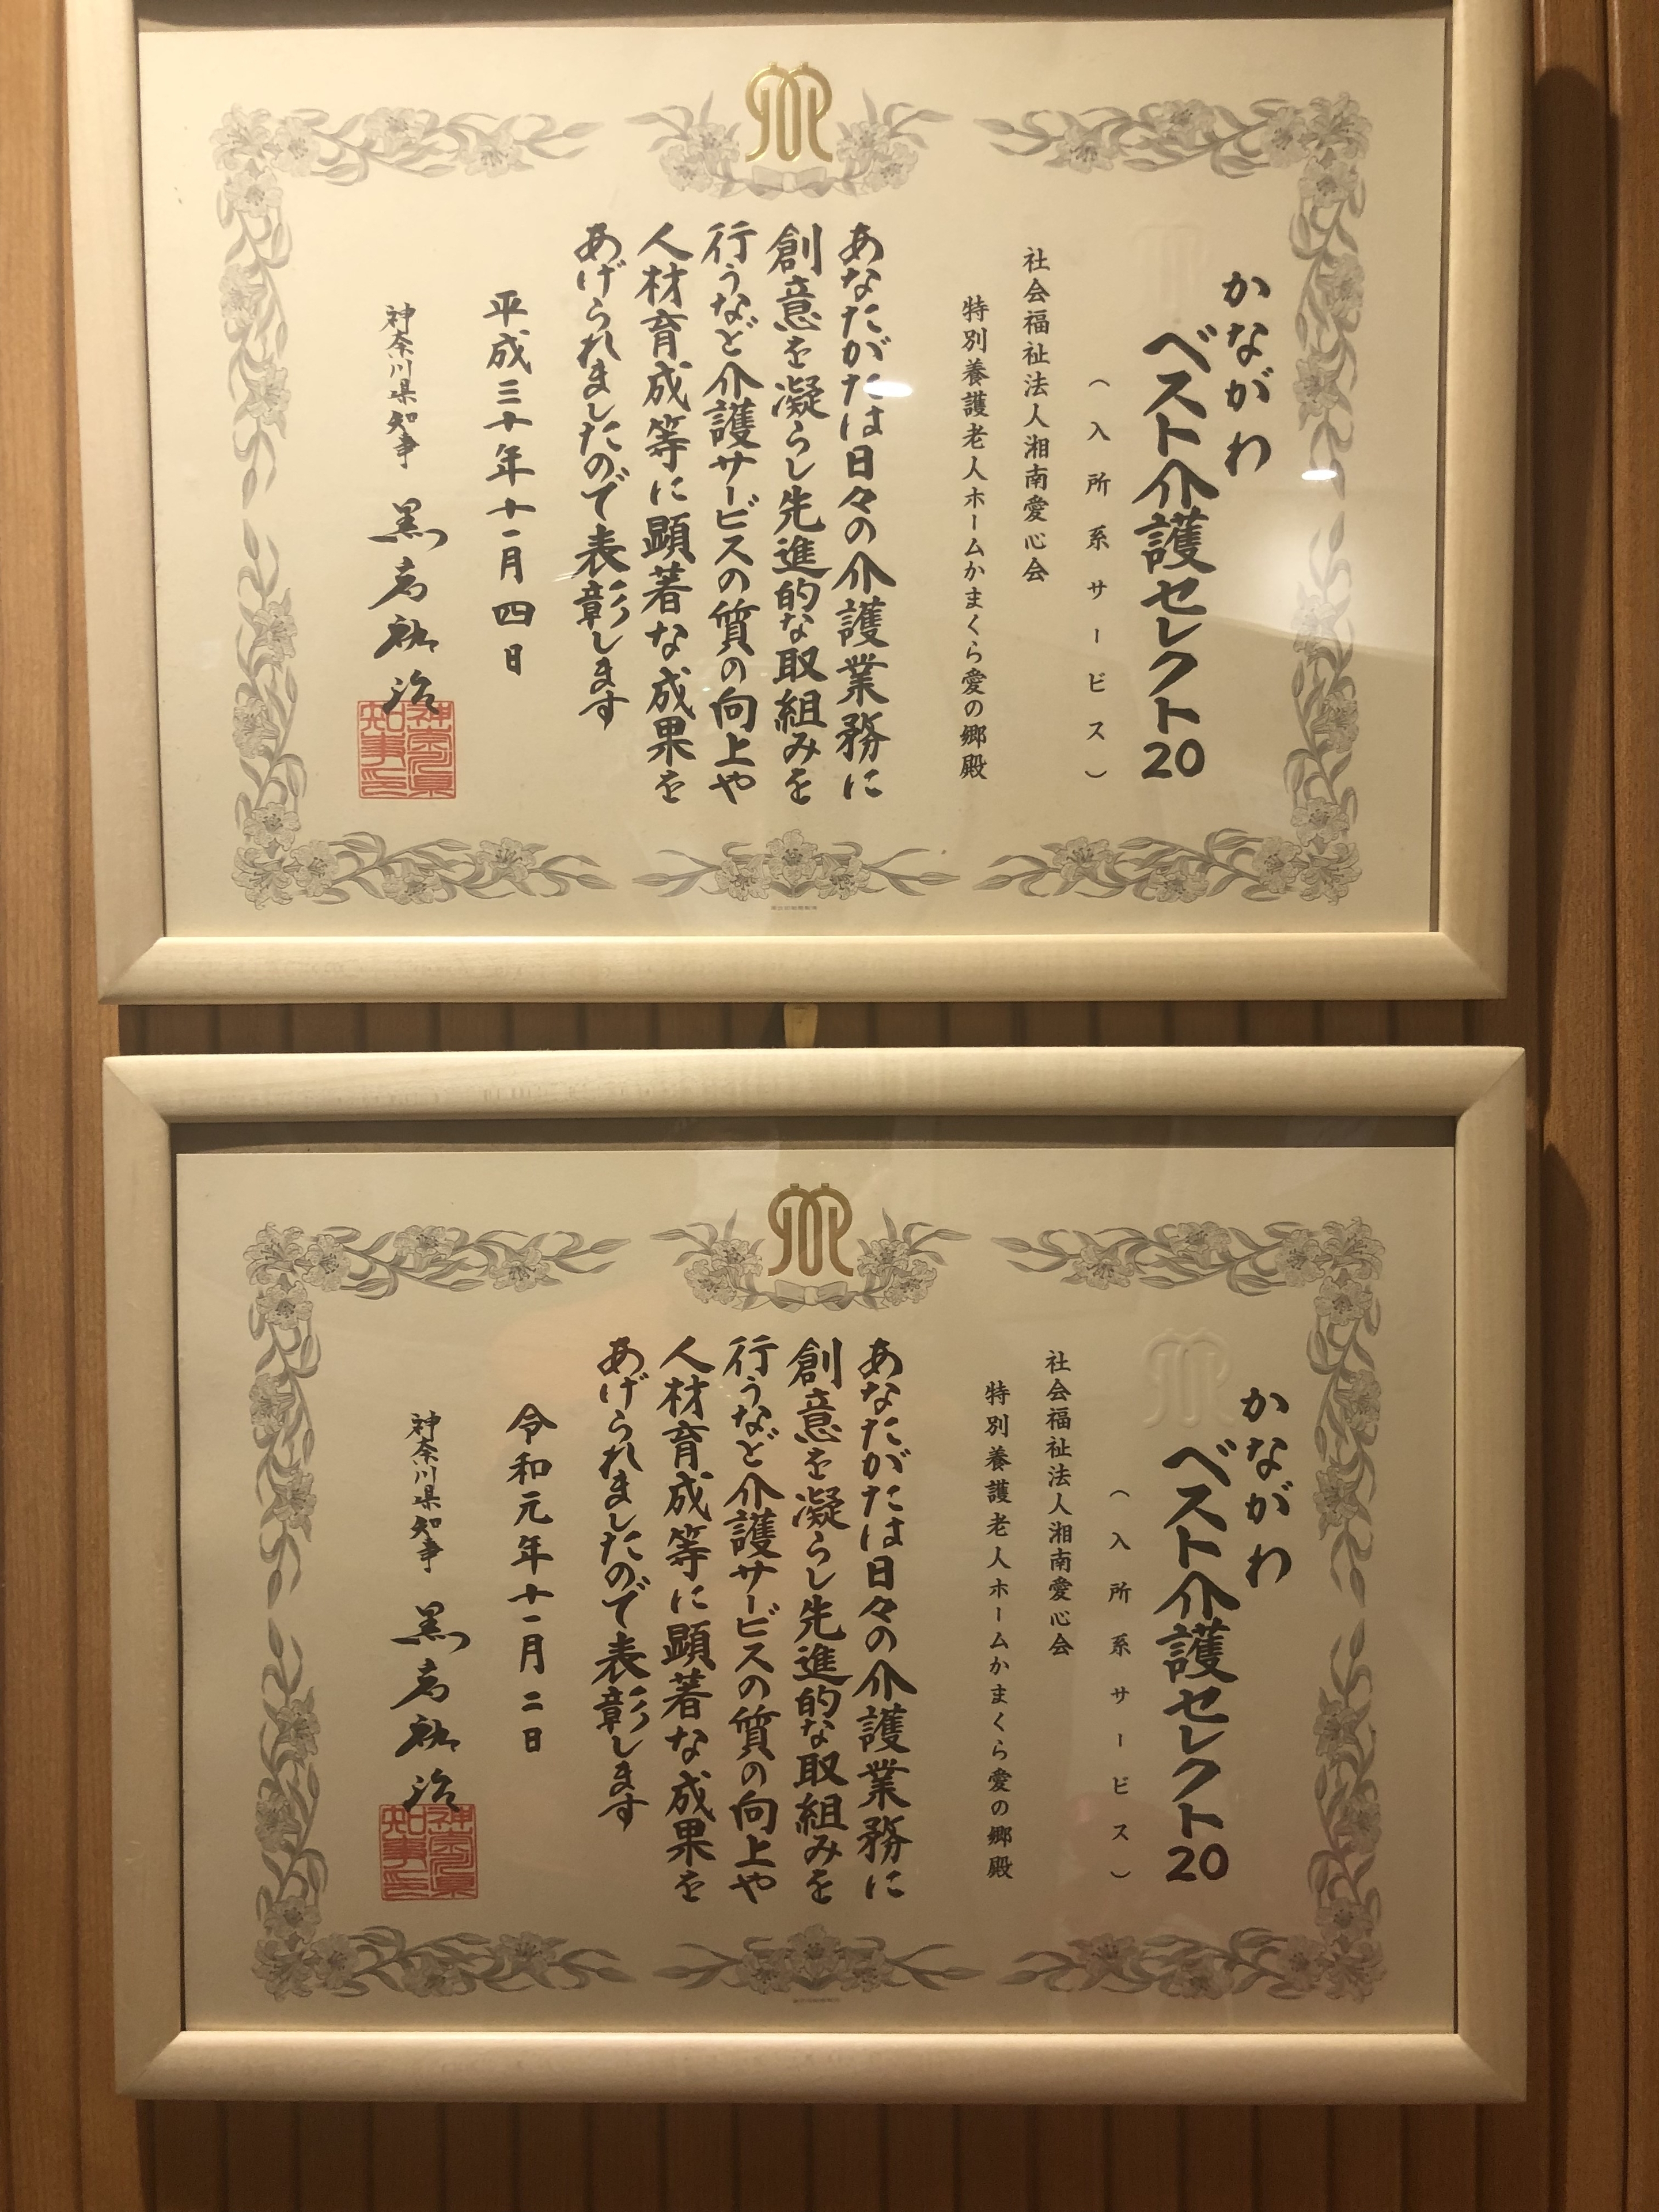 かながわ
ベスト介護セレクト20
（入所系サービス）
社会福祉法人湘南愛心会
特別養護老人ホームかまくら愛の郷殿
あなたがたは日々の介護業務に
創意を凝らし先進的な取組みを
行うなど介護サービスの質の向上や
人材育成等に顕著な成果を
あげられましたので表彰します
平成三十年十一月四日
神奈川県知事 黒岩祐治
かながわ
ベスト介護セレクト20
（入所系サービス）
社会福祉法人湘南愛心会
特別養護老人ホームかまくら愛の郷殿
あなたがたは日々の介護業務に
創意を凝らし先進的な取組みを
行うなど介護サービスの質の向上や
人材育成等に顕著な成果を
あげられましたので表彰します
令和元年十一月二日
神奈川県知事 黒岩祐治